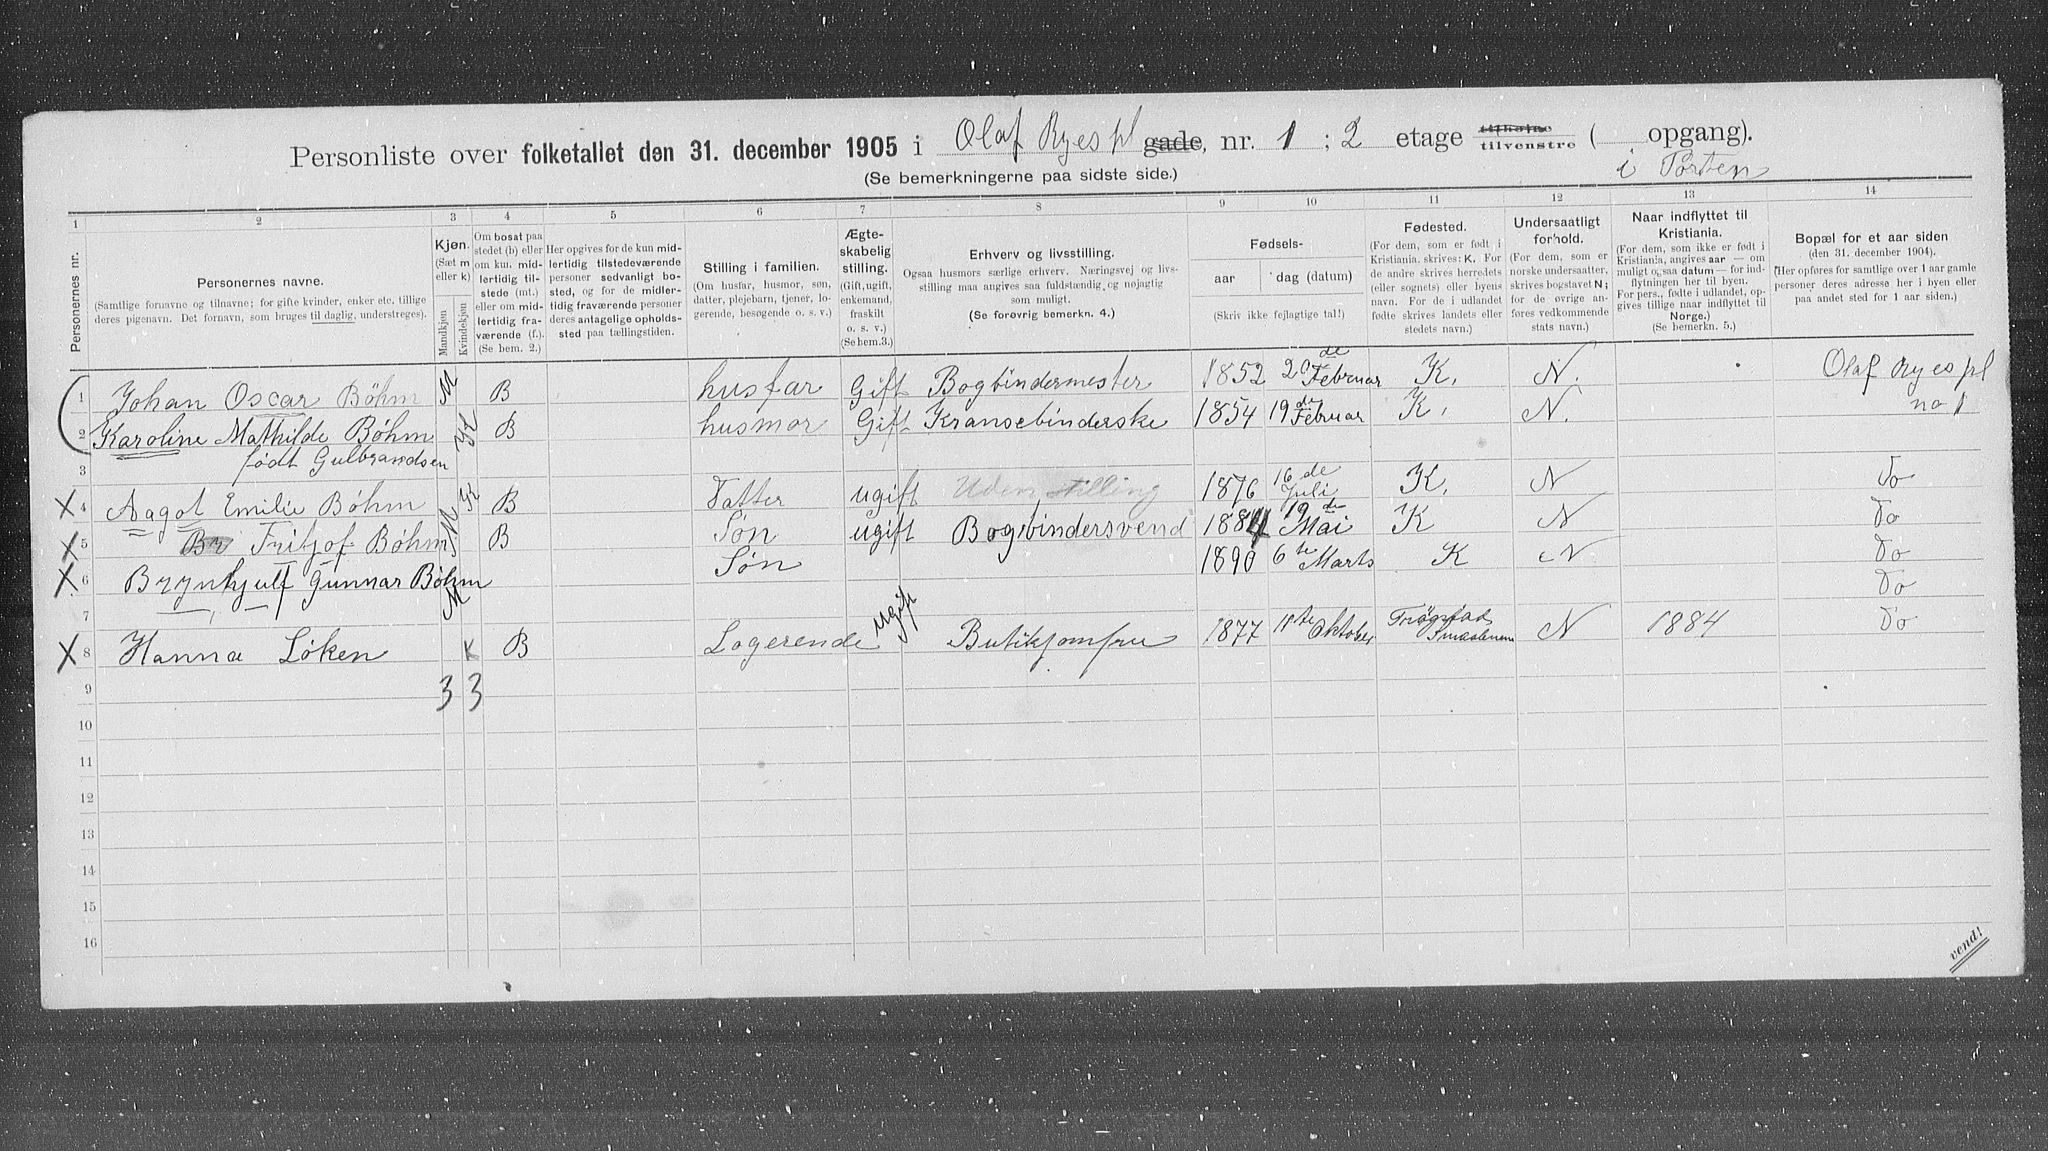 Personliste over folketallet den 31. december 1905 i Olaf Ryes pl gade, nr. 1 ; 2 etage tilhøire tilvenstre ( opgang).
(Se bemerkningerne paa sidste side.)
i Porten
1 2 3 4 5 6 7 8 9 10 11 12 13 14
Personernes nr.
Personernes navne.
(Samtlige fornavne og tilnavne; for gifte kvinder, enker etc, tillige
deres pigenavn. Det fornavn, som bruges til daglig, understreges).
Kjøn.
(Sæt m
eller k)
Mandkjøn
Kvindekjøn
Om bosat paa
stedet (b) eller
om kun midlertidig
tilstede (mt.)
eller om midlertidig
fraværende (f.).
(Se bem. 2.)
Her opgives for de kun midlertidig
tilstedeværende
personer sedvanligt bosted,
og for de midlertidig
fraværende personer
deres antagelige opholdssted
paa tællingstiden.
Stilling i familien.
(Om husfar, husmor, søn,
datter, plejebarn, tjener, logerende,
besøgende o. s. v.)
Ægteskabelig
stilling.
(Gift, ugift,
enkemand,
fraskilt
o. s. v.)
(Se bem. 3.)
Erhverv og livsstilling.
Ogsaa husmors særlige erhverv. Næringsvej og livsstilling
maa angives saa fuldstændig og nøjagtig
som muligt.
(Se forøvrig bemerkn. 4.)
Fødsels-
aar
dag (datum)
(Skriv ikke fejlagtige tal!)
Fødested.
(For dem, som er født i
Kristiania, skrives: K. For
de andre skrives herredets
(eller sognets) eller byens
navn. For de i udlandet
fødte skrives landets eller
stedets navn.)
Undersaatligt
forhold.
(For dem, som er
norske undersaatter,
skrives bogstavet N;
for de øvrige anføres
vedkommende
stats navn.)
Naar indflyttet til
Kristiania.
(For dem, som ikke er født i
Kristiania, angives aar — om
muligt ogsaa datum — for indflytningen
her til byen.
For pers., fødte i udlandet, opgives
tillige naar indflyttet til
Norge.)
(Se bemerkn. 5.)
Bopæl for et aar siden
(den 31. december 1904).
(Her opføres for samtlige over 1 aar gamle
personer deres adresse her i byen eller
paa andet sted for 1 aar siden.)
1 Johan Oscar Böhm M B husfar Gift Bogbindermester 1852 20de Februar K. N. Olaf Ryes pl
2 Karoline Mathilde Bøhm K B husmor Gift Kransebinderske 1854 19de Februar K. N. no 1
3 født Gulbrandsen
4 Aagot Emilie Bøhm K B Datter ugift Uden stilling 1876 16de Juli K. N Do
5 Br Fritjof Bøhm M B Søn ugift Bogbindersvend 1884 19de Mai K N Do
6 Brynhjulf Gunnar Bøhm M Søn 1890 6te Marts K N Do
Do
7
8 Hanna Løken K B Logerende ugift Butikjomfru 1877 11te Oktober Trøgstad Smaalenene N 1884 Do
9 3 3
10
11
12
13
14
15
16
vend!